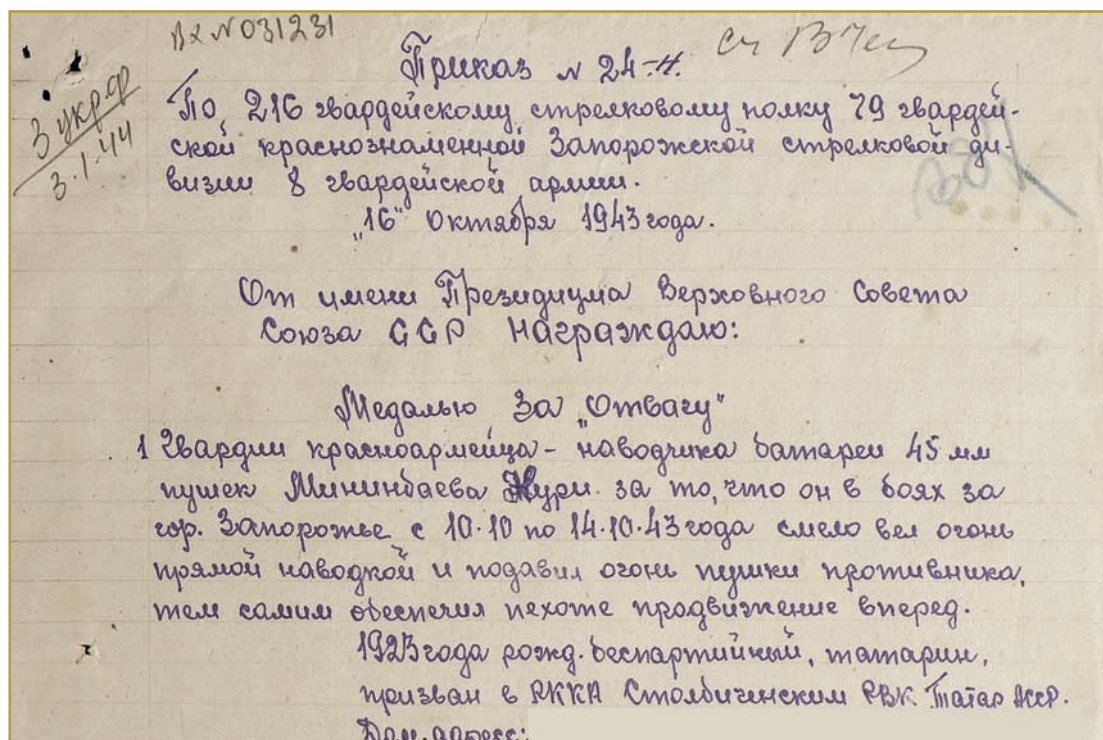 Вх №031231
Приказ № 24-н.
3 укр.ф
3.1.44
По 216 гвардейскому стрелковому полку 79 гвардей-
ской краснознаменной Запорожской стрелковой ди-
визии 8 гвардейской армии.
„16" Октября 1943 года.
От имени Президиума Верховного Совета
Союза ССР Награждаю:
Медалью За „Отвагу"
1 Гвардии красноармейца - наводчика батареи 45 мм
пушек Мининбаева Нури. за то, что он в боях за
гор. Запорожье с 10.10 по 14.10.43 года смело вел огонь
прямой наводкой и подавил огонь пушки противника,
тем самим обеспечил пехоте продвижение вперед.
1923 года рожд. беспартийный, татарин,
призван в РККА Столбиченским РВК Татар АССР.
Дом. адрес: